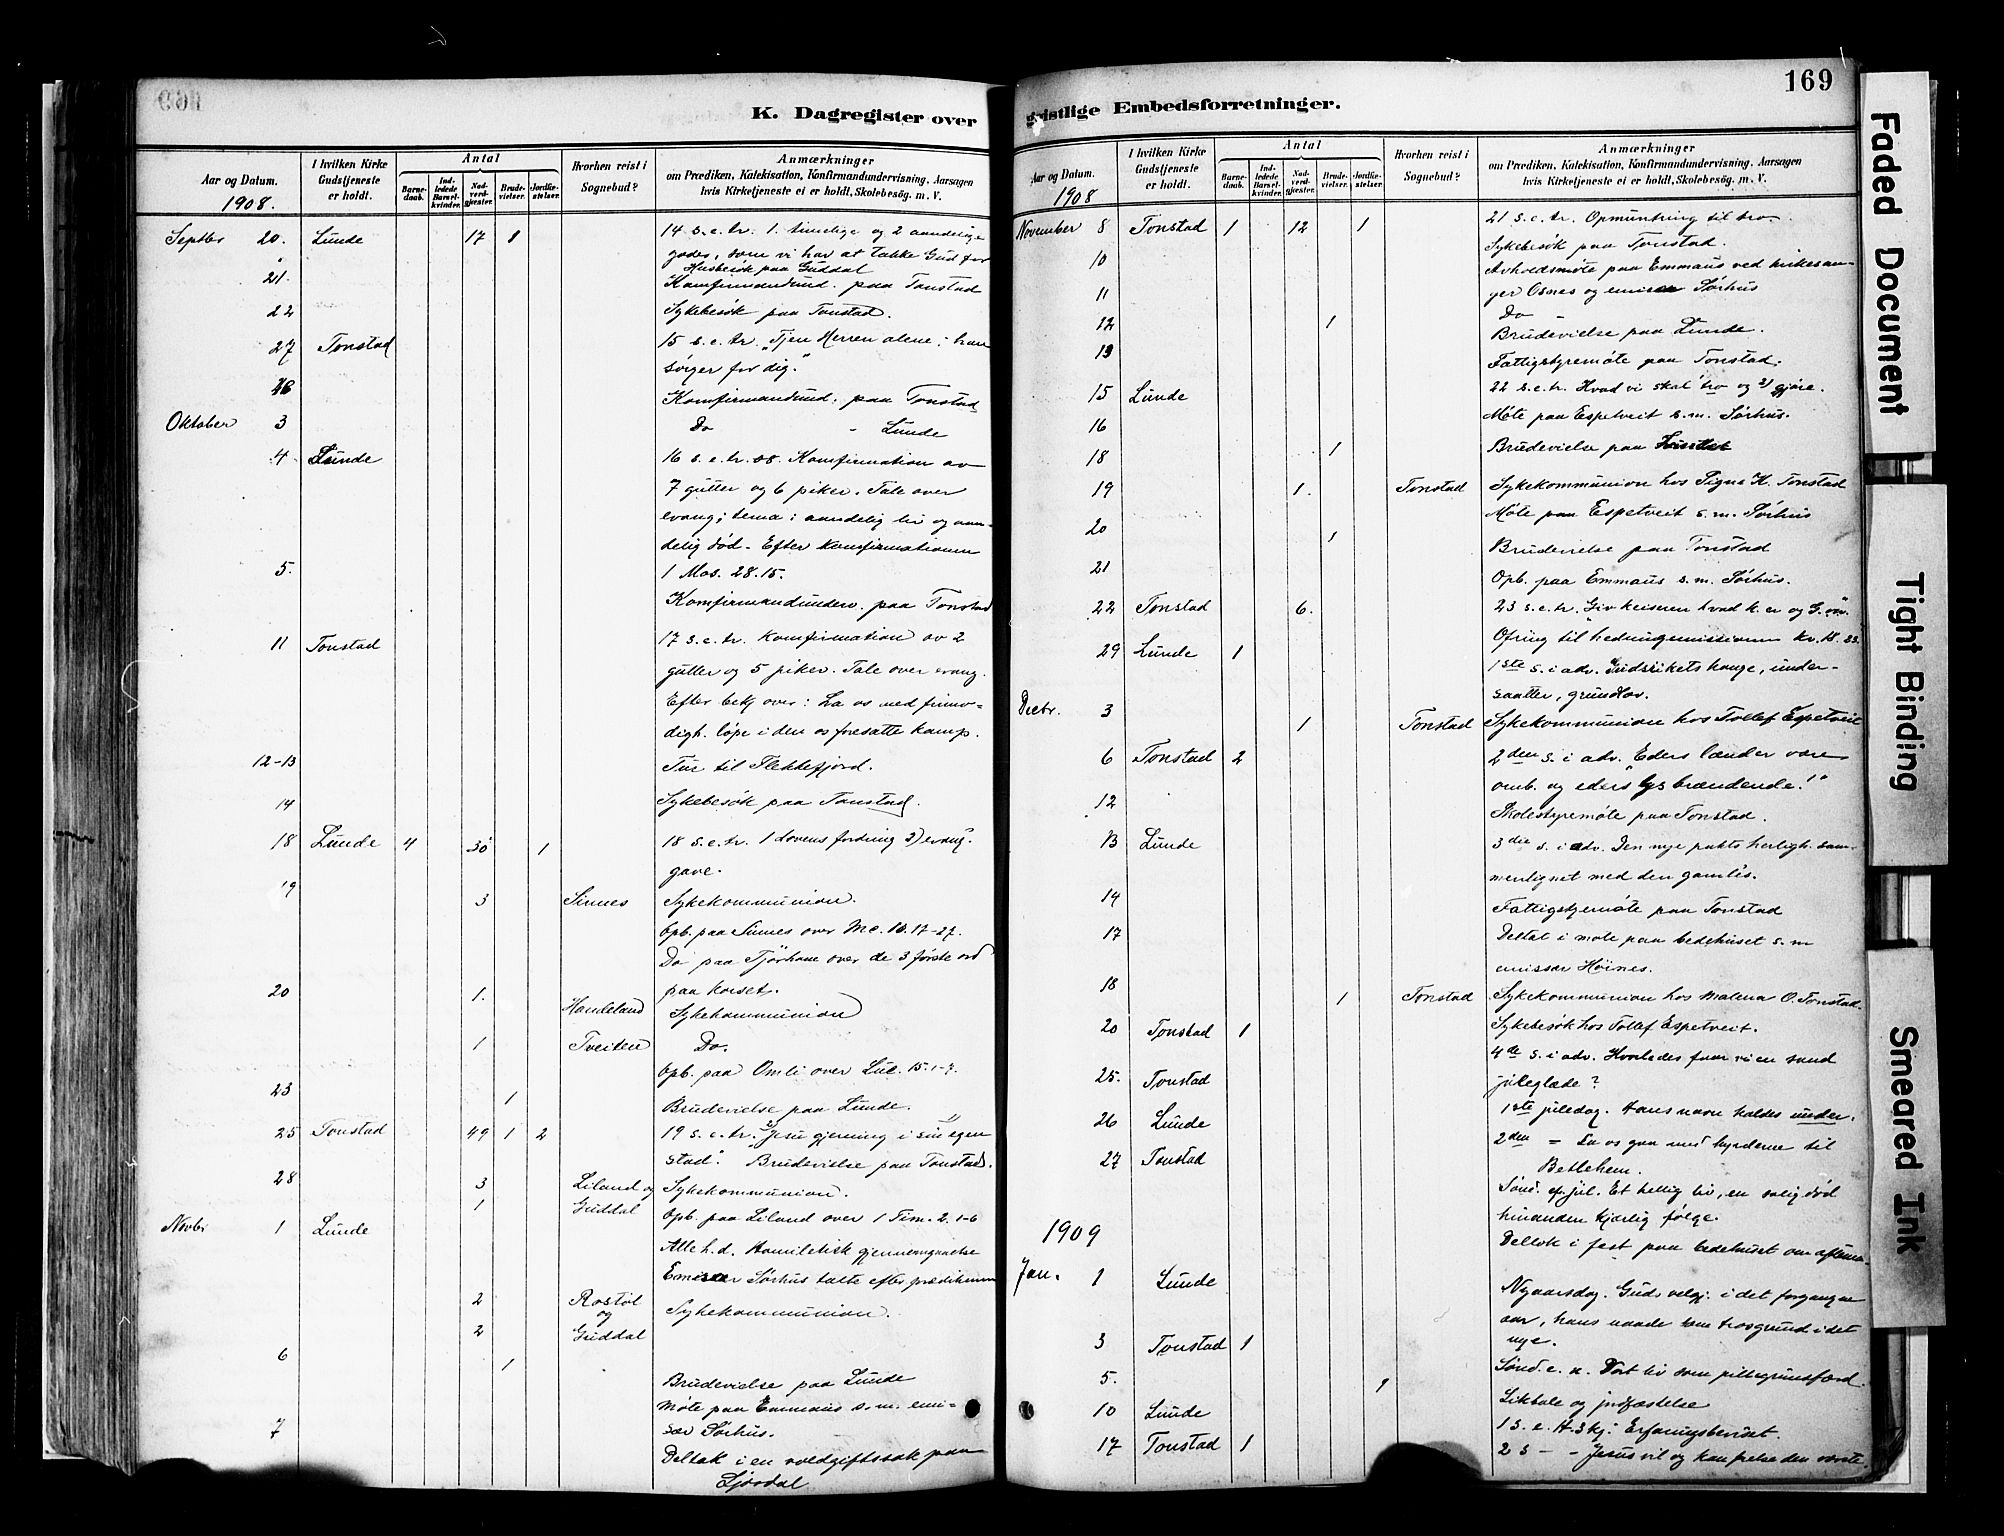 K. Dagregister over
Aar og Datum.
1908.
I hvilken Kirke Gudstjeneste er holdt.
Antal
Barnedaab.
Indledede Barselkvinder.
Nadverdgjester.
Brudevielser.
Jordfæstelser.
Hvorhen reist i Sognebud?
Anmærkninger
om Prædiken, Katekisation, Konfirmandundervisning, Aarsagen
hvis Kirketjeneste ei er holdt, Skolebesøg. m. V.
Septbr 20. Lunde 17 1 14 s. e. tr. 1. timelige og 2 aandelige
goder, som vi har at takke Gud for
Husbesøk paa Guddal
21. Konfirmandund. paa Tonstad
22 Sykebesøk paa Tonstad.
27 Tonstad 15 s. e. tr. "Tjen Herren alene; han
sørger for dig."
28 Konfirmandund. paa Tonstad
Oktober 3 Do - Lunde
4 Lunde 16 s. e. tr. Konfirmation av
7 gutter og 6 piker. Tale over
evang; tema: aandelig liv og aan-
delig død. Efter konfirmationen
5. 1 Mos. 28.15.
Konfirmandunderv. paa Tonstad
11 Tonstad 17 s. e. tr. Konfirmation av 2
gutter og 5 piker. Tale over evang.
Efter bekj over: La os med frimo-
digh. løpe i den os foresatte kamp.
12-13 Tur til Flekkefjord.
14 Sykebesøk paa Tonstad.
18 Lunde 4 30 1 18 s. e. tr. 1 lovens fordring 2) evang.
gave.
19 3 Sinnes Sykekommunion.
Opb. paa Sinnes over Mc. 10.17-27.
Do paa Tjørhom over de 3 første ord
paa korset.
20 1. Handeland Sykekommunion
1 Tveiten Do.
Opb. paa Omli over Luc. 15.1-7.
23 1 Brudevielse paa Lunde.
25 Tonstad 49 1 2 19 s. e. tr. "Jesu gjerning i sin egen
stad". Brudevielse paa Tonstad.
28 3 Liland og Sykekommunion.
1 Guddal Opb. paa Liland over 1 Tim. 2.1-6
Novbr 1 Lunde Alle h. d. Homiletisk gjennemgaaelse
Emissær Sørhus talte efter prædikenen
2 Rostøl
og Sykekommunion.
2 Guddal
6 1 Brudevielse paa Lunde
Møte paa Emmaus s.m. emi-
7 sær Sørhus.
Deltok i en voldgiftssak paa
Sjørdal
geistlige Embedsforretninger.
169
Aar og Datum.
1908
I hvilken Kirke Gudstjeneste er holdt.
Antal
Barnedaab.
Indledede Barselkvinder.
Nadverdgjester.
Brudevielser.
Jordfæstelser.
Hvorhen reist i Sognebud?
Anmærkninger
om Prædiken, Katekisation, Konfirmandundervisning, Aarsagen
hvis Kirketjeneste ei er holdt, Skolebesög. m. V.
November 8 Tonstad 1 12 1 21 s. e. tr. Opmuntring til tro.
Sykebesøk paa Tonstad.
10 Avholdsmøte paa Emmaus ved kirkesan-
11 ger Osnes og emissær Sørhus
Do -
12 1 Brudevielse paa Lunde.
13 Fattigstyremøte paa Tonstad.
15 Lunde 22 s. e. tr. Hvad vi skal tro og 2) gjøre.
16 Møte paa Espetveit s.m. Sørhus.
18 1 Brudevielse paa
19 1. Tonstad Sykekommunion hos Signe K. Tonstad
Møte paa Espetveit s.m. Sørhus
20 1 Brudevielse paa Tonstad
21 Opb. paa Emmaus s.m. Sørhus.
22 Tonstad 6. 23 s. e. tr. Giv keiseren hvad k. er og G.
Ofring til hedningemissionen kr. 11.
29 Lunde 1 1ste s. i adv. Gudsrikets konge, under-
saatter, grundlov.
Decbr. 3 1 Tonstad Sykekommunion hos Tollef Espetveit
6 Tonstad 2 2den s. i adv. Eders lænder være
omb. og eders lys brændende!"
12 Skolestyremøte paa Tonstad.
13 Lunde 3die s. i adv. Den nye pakts herligh. sam-
menlignet med den gamles.
14 Fattigstyremøte paa Tonstad
17 Deltat i møte paa bedehuset s.m
emissær Høines.
18 1 Tonstad Sykekommunion hos Malena O. Tonstad.
20 Tonstad 1 Sykebesøk hos Tollef Espetveit.
4de s. i adv. Hvorledes faar vi en sand
25. Tonstad juleglæde?
26 Lunde 1ste juledag. Hans navn kaldes under.
2den = La os gaa med hyrderne til
27 Tonstad Betlehem.
Sønd. ef. jul. Et hellig liv, en salig død
hinanden kjærlig følge.
Deltok i fest paa bedehuset om aftenen.
1909
Jan. 1 Lunde Nyaarsdag. Guds velgj. i det forgangne
aar, hans naade som trosgrund i det
nye.
3 Tonstad 1 Sønd. e. n. Vort liv som piltegrimsfærd.
5. 1 Liktale og jordfæstelse
10 Lunde 1 s. e. H. 3 kj: Erfaringsbeviset.
17 Tonstad 1 2 s - - Jesus vil og kan frelse den værste.
Faded Document
Tight Binding
Smeared Ink